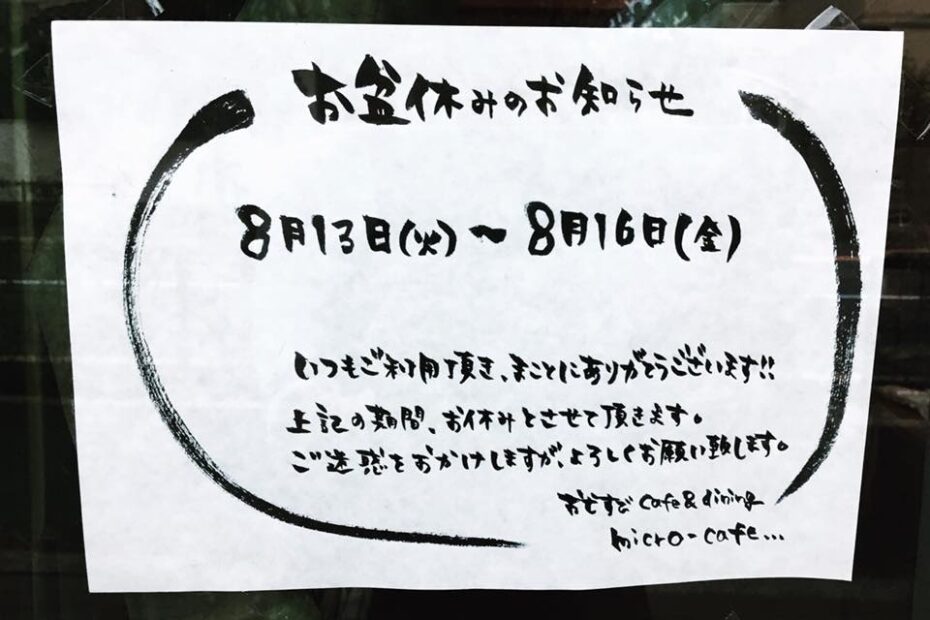 お盆休みのお知らせ
8月13日(火)〜8月16日(金)
いつもご利用頂き、まことにありがとうございます!!
上記の期間、お休みとさせて頂きます。
ご迷惑をおかけしますが、よろしくお願い致します。
おむすび cafe & dining
micro-cafe...